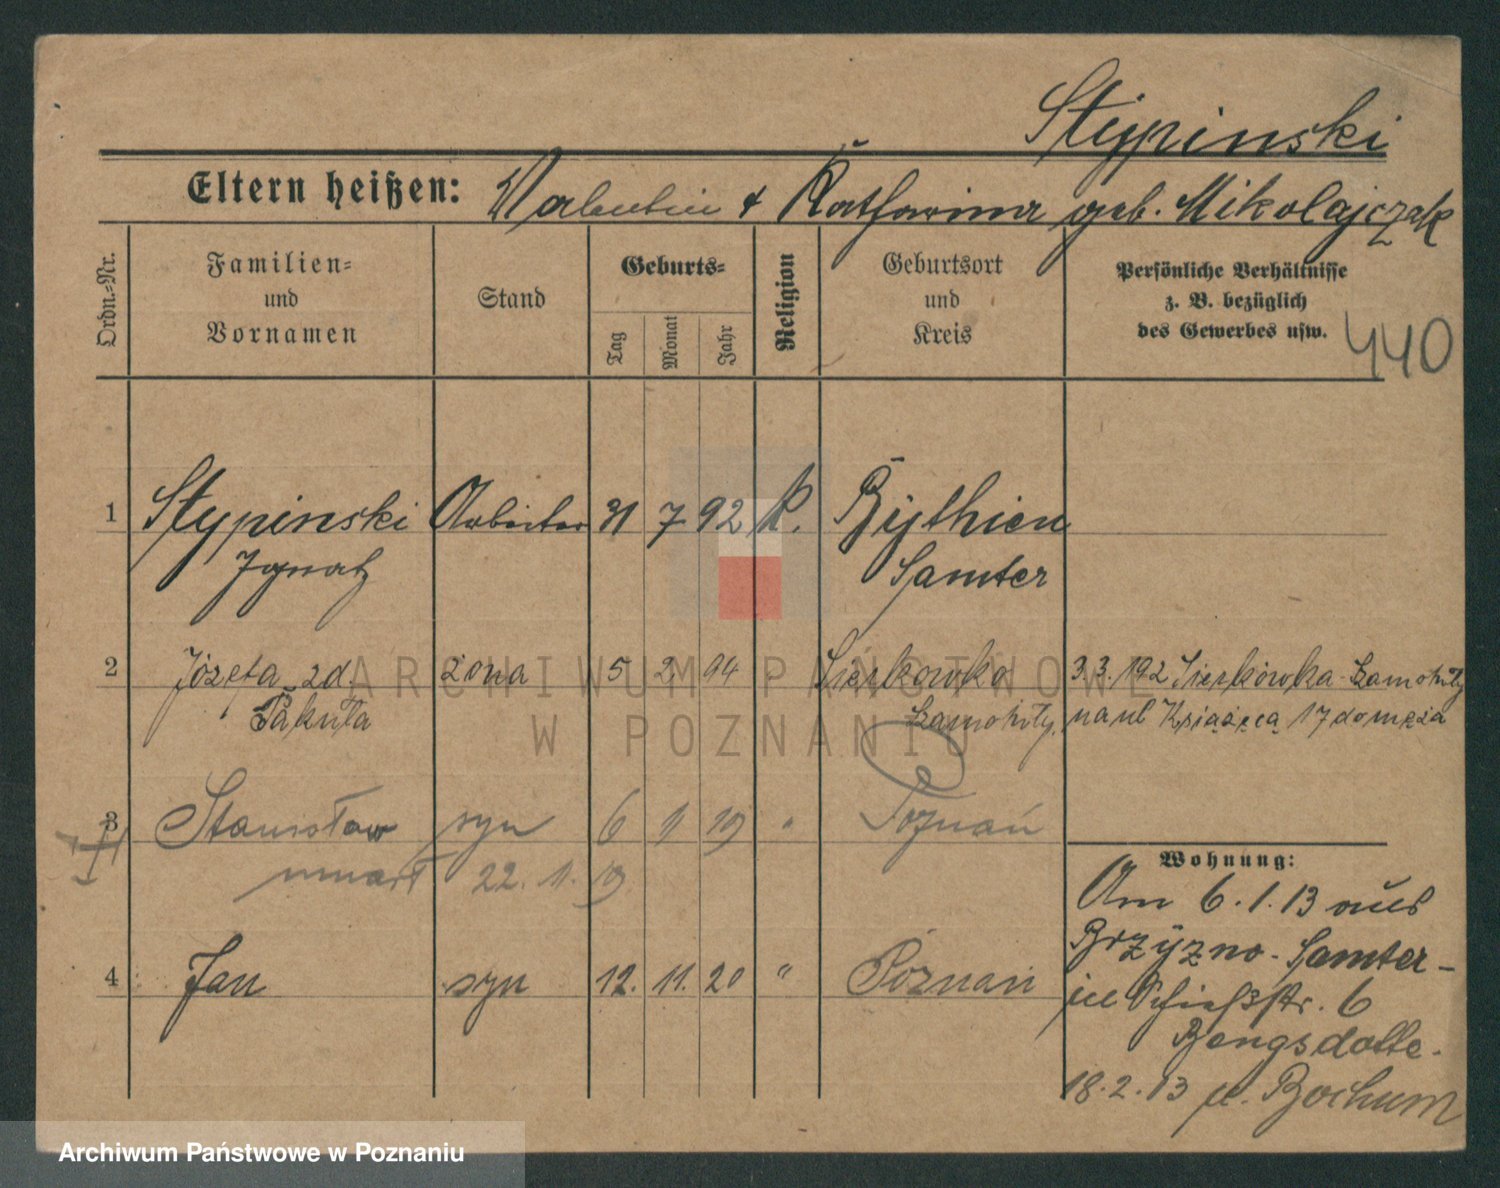 Stypinski
Eltern heißen: Valentin & Katharina geb. Mikolajczak
Ordn.-Nr.
Familien- und Vornamen
Stand
Geburts-
Tag Monat Jahr
Religion
Geburtsort und Kreis
Persönliche Verhältnisse
z. B. bezüglich
des Gewerbes usw.
440
1 Stypinski Arbeiter 31 7 92 K. Bythien
Ignatz Samter
2 Józefa zd. żona 5 2 94 Sierkowko 3.3.192 Sierkówka - Szamotuły
Pakuła Szamotuły, na ul Książęcą 17 do męża
3 Stanisław syn 6 1 19 " Poznań
umarł 22. 1. 19
4 Jan syn 12. 11. 20 " Poznań
Wohnung:
Am 6.1.13 aus
Brzyzno - Samter -
in Schießstr. 6
18.2.13 n. Bochum
ARCHIWUM PAŃSTWOWE
W POZNANIU
Archiwum Państwowe w Poznaniu